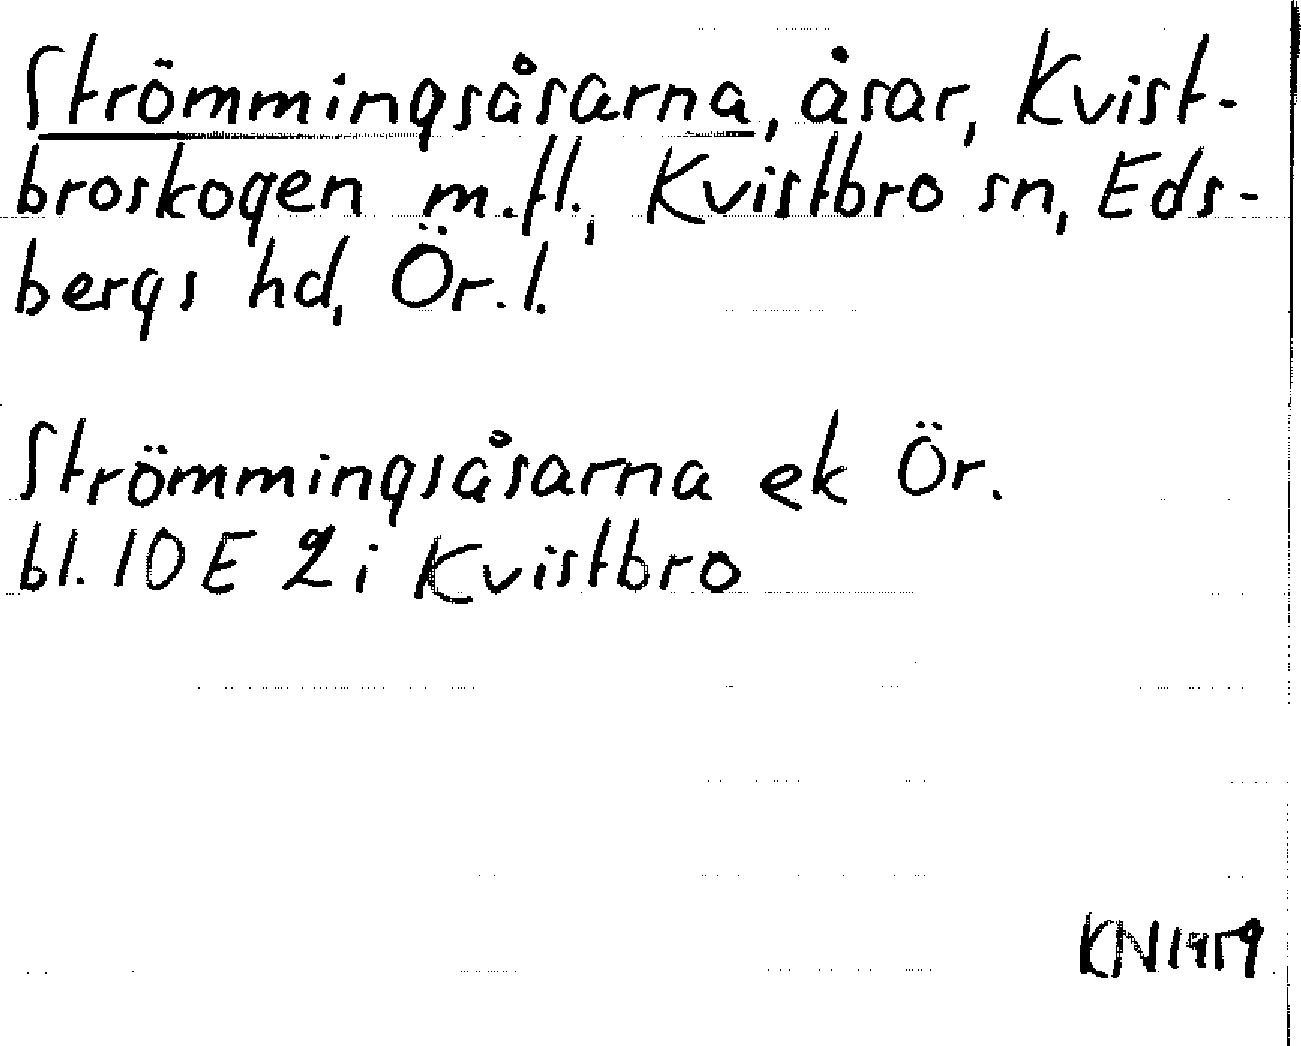 Strömmingsåsarna, åsar, Kvist-
broskogen m.fl., Kvistbro sn, Eds-
bergs hd, Ör. l.
Strömmingsåsarna ek Ör.
bl. 10 E 2 i Kvistbro
KN 1959